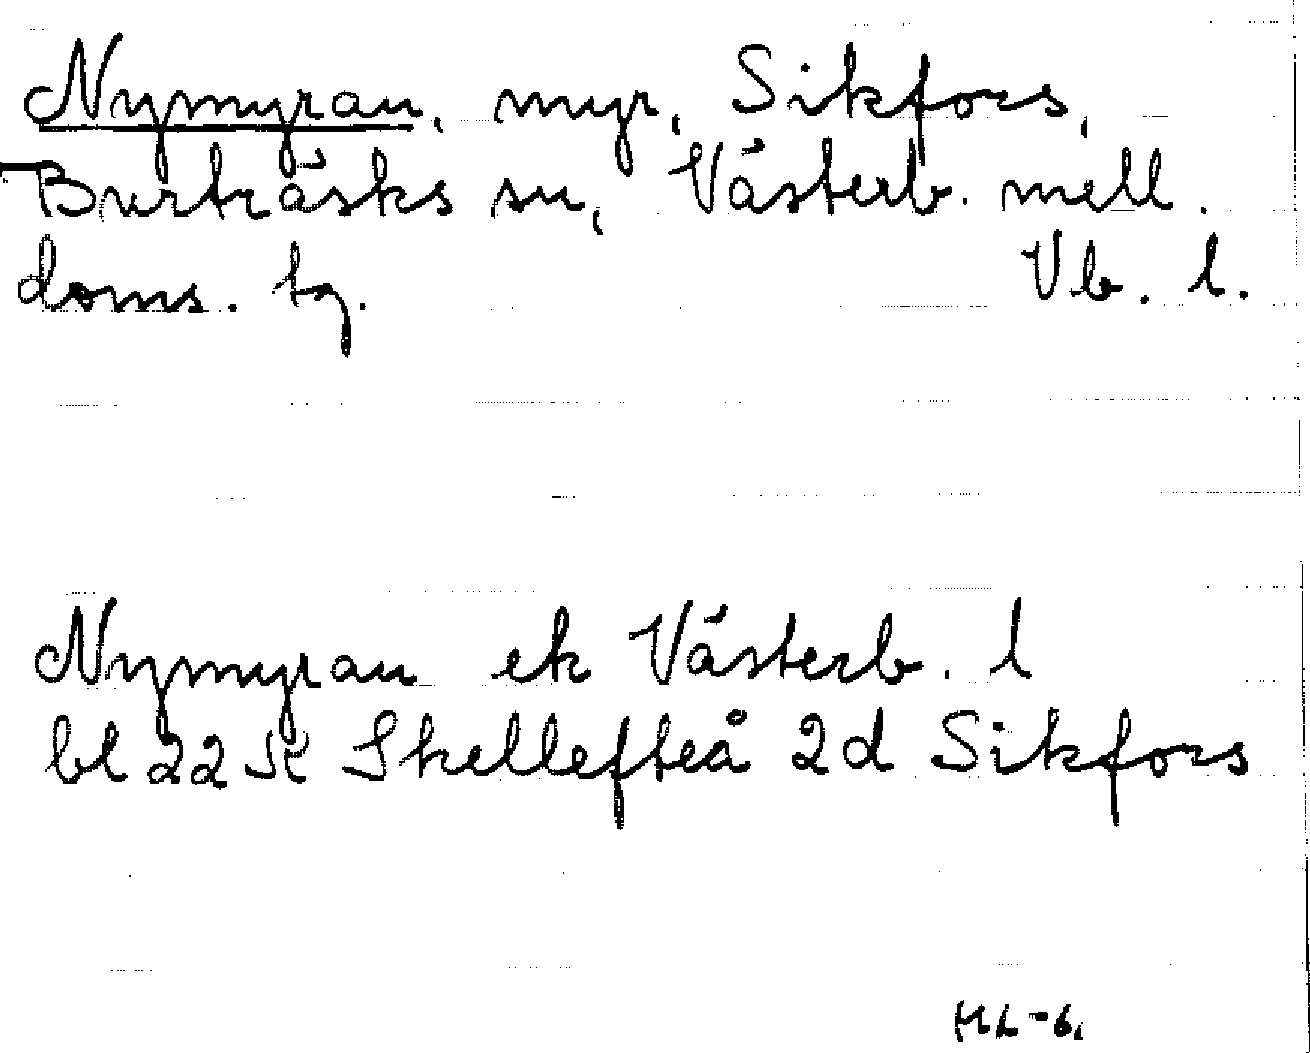 Nymyran, myr, Sikfors,
Burträsks sn, Västerb. mell.
doms. tg. Vb. l.
Nymyran ek Västerb. l
bl 22 K Skellefteå 2d Sikfors